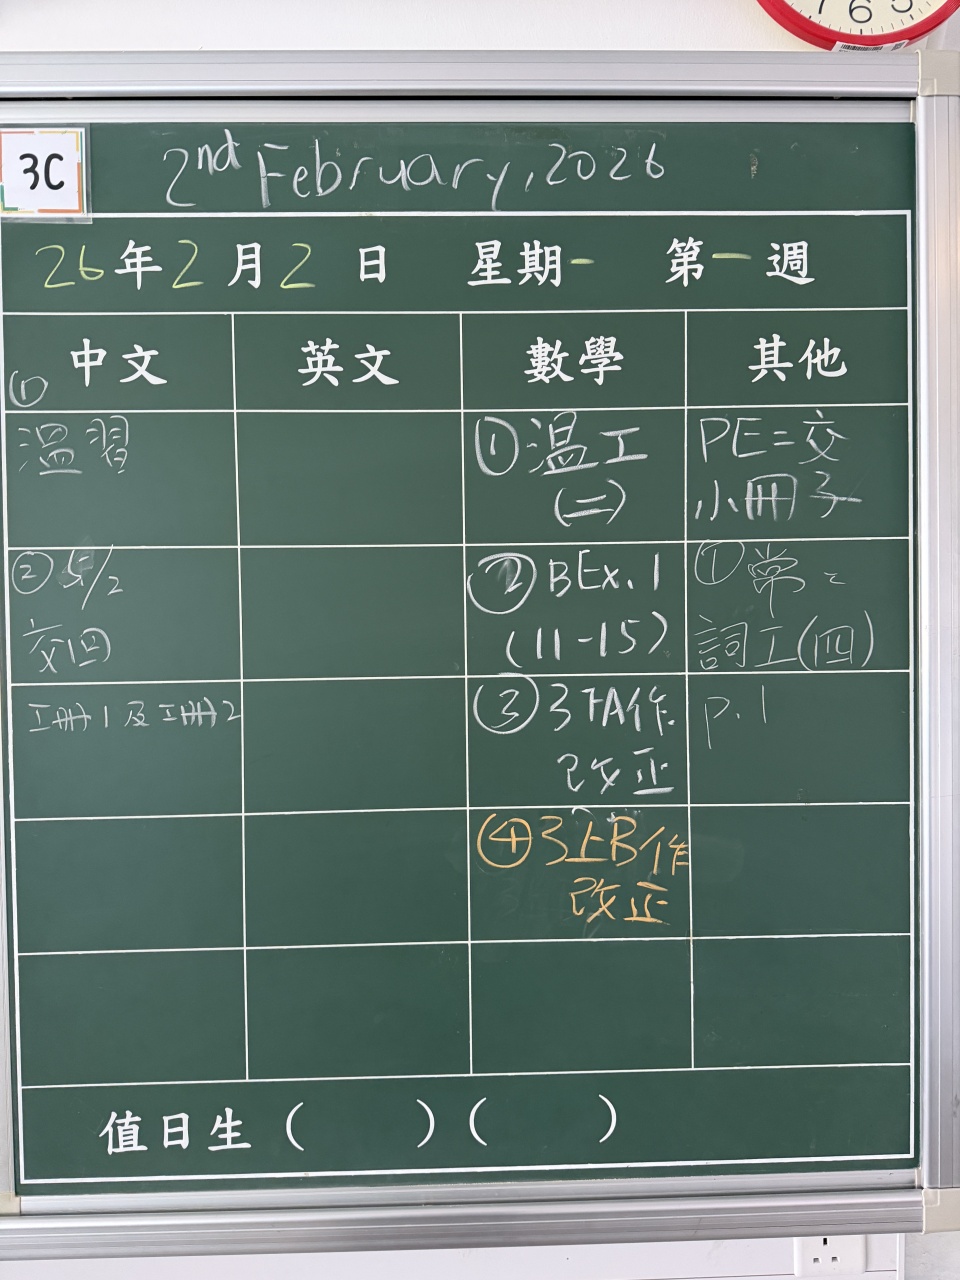 7 6 5
3C
2nd February, 2026
26年2月2日 星期一 第一週
中文 英文 數學 其他
① 溫習
② 5/2
交回
工冊1及工冊2
①温工
(二)
②BEx.1
(11-15)
③3下A作
改正
④3上B作
改正
PE=交
小冊子
①常:
詞工(四)
p.1
值日生( )( )